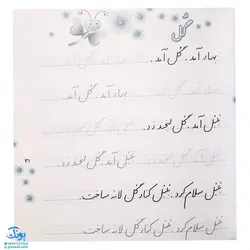 گل
بهار آمد. گل آمد.
بهار آمد. گل آمد.
بلبل آمد. گل لبخند زد.
بلبل آمد. گل لبخند زد.
۳۱
بلبل سلام کرد. بلبل کنار گل لانه ساخت.
بلبل سلام کرد. بلبل کنار گل لانه ساخت.
پونک